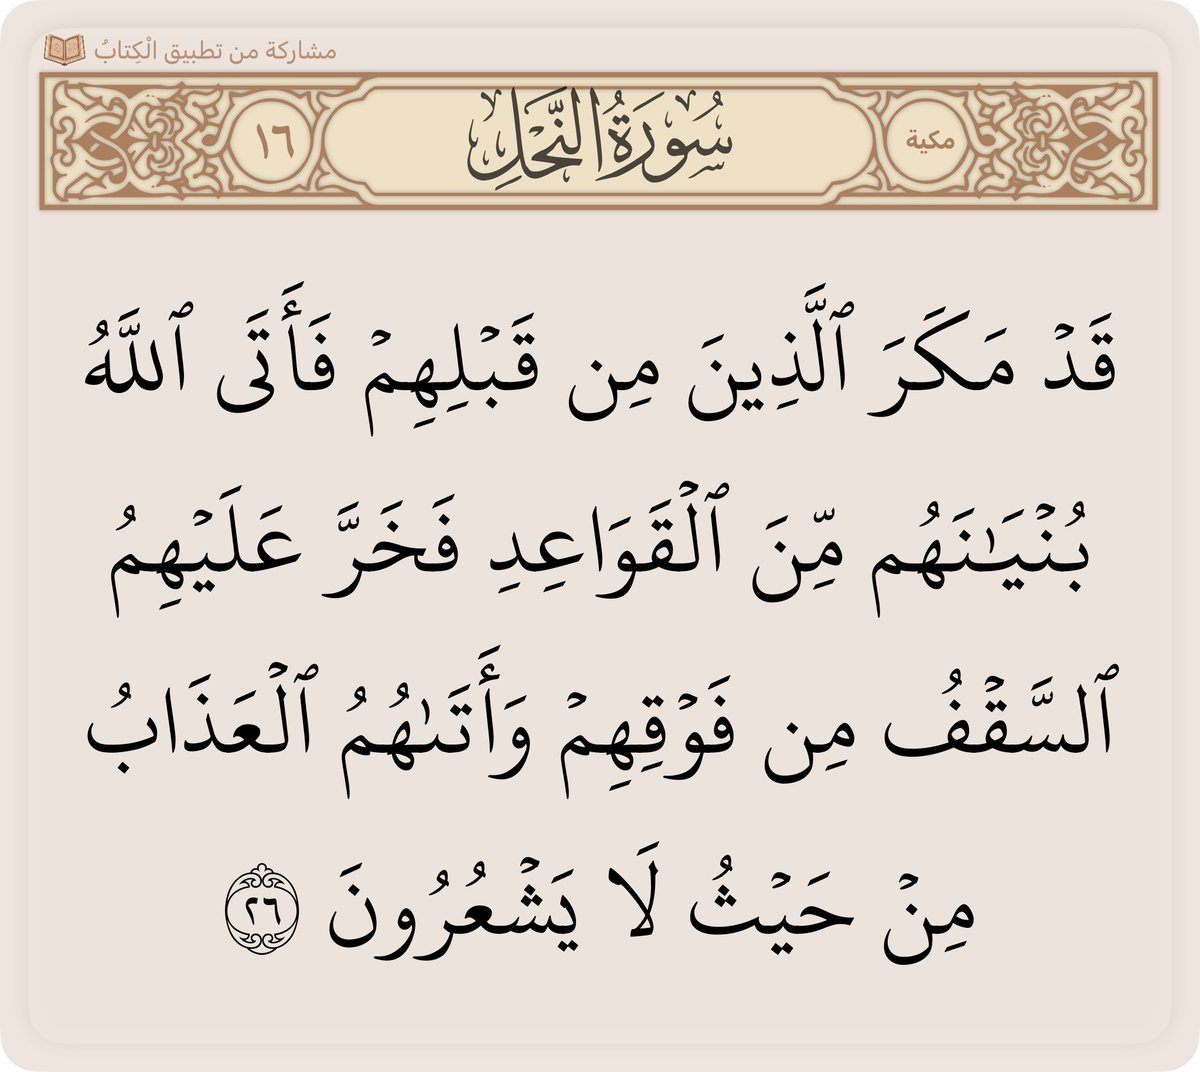 مشاركة من تطبيق الْكِتابُ
مكية
سُورَةُ النَّحْلِ
١٦
قَدْ مَكَرَ ٱلَّذِينَ مِن قَبْلِهِمْ فَأَتَى ٱللَّهُ
بُنْيَـٰنَهُم مِّنَ ٱلْقَوَاعِدِ فَخَرَّ عَلَيْهِمُ
ٱلسَّقْفُ مِن فَوْقِهِمْ وَأَتَىٰهُمُ ٱلْعَذَابُ
مِنْ حَيْثُ لَا يَشْعُرُونَ ٢٦